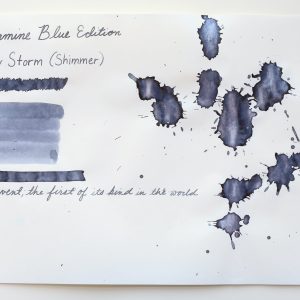 mine Blue Edition
Storm (Shimmer)
vent, the first of its kind in the world